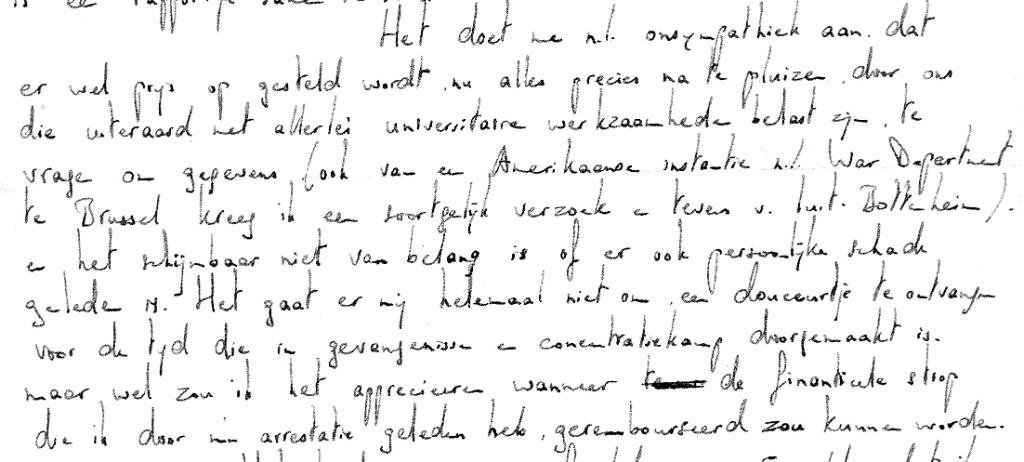 Het doet me n.l. onsympathiek aan, dat
er wel prijs op gesteld wordt, nu alles precies na te pluizen, door ons
die uiteraard met allerlei universitaire werkzaamhede belast zijn, te
vrage om gegevens (ook van een Amerikaanse instantie n.l. War Department
te Brussel kreeg ik een soortgelijk verzoek en tevens v. luit. Bottenheim).
en het schijnbaar niet van belang is of er ook persoonlijke schade
gelede is. Het gaat er mij helemaal niet om, een douceurtje te ontvangen
voor de tijd die in gevangenissen en concentratiekamp doorgemaakt is.
maar wel zou ik het apprecieeren wanneer de financieele strop
die ik door mijn arrestatie geleden heb, gerembourseerd zou kunnen worden.